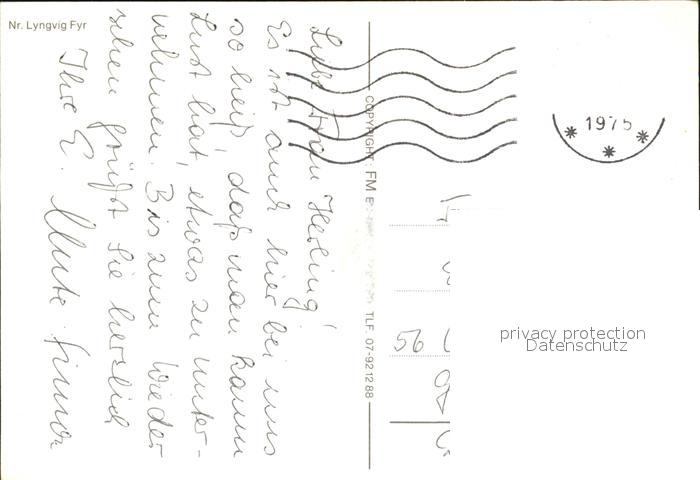 Nr. Lyngvig Fyr
Liebe Frau Herling!
Es ist auch hier bei uns
so heiß, daß man kaum
Lust hat, etwas zu unter-
nehmen. Bis zum Wieder
sehen grüßt Sie herzlich
Ihre E.
COPYRIGHT: FM
TLF. 07-921288
1975
56
privacy protection
Datenschutz